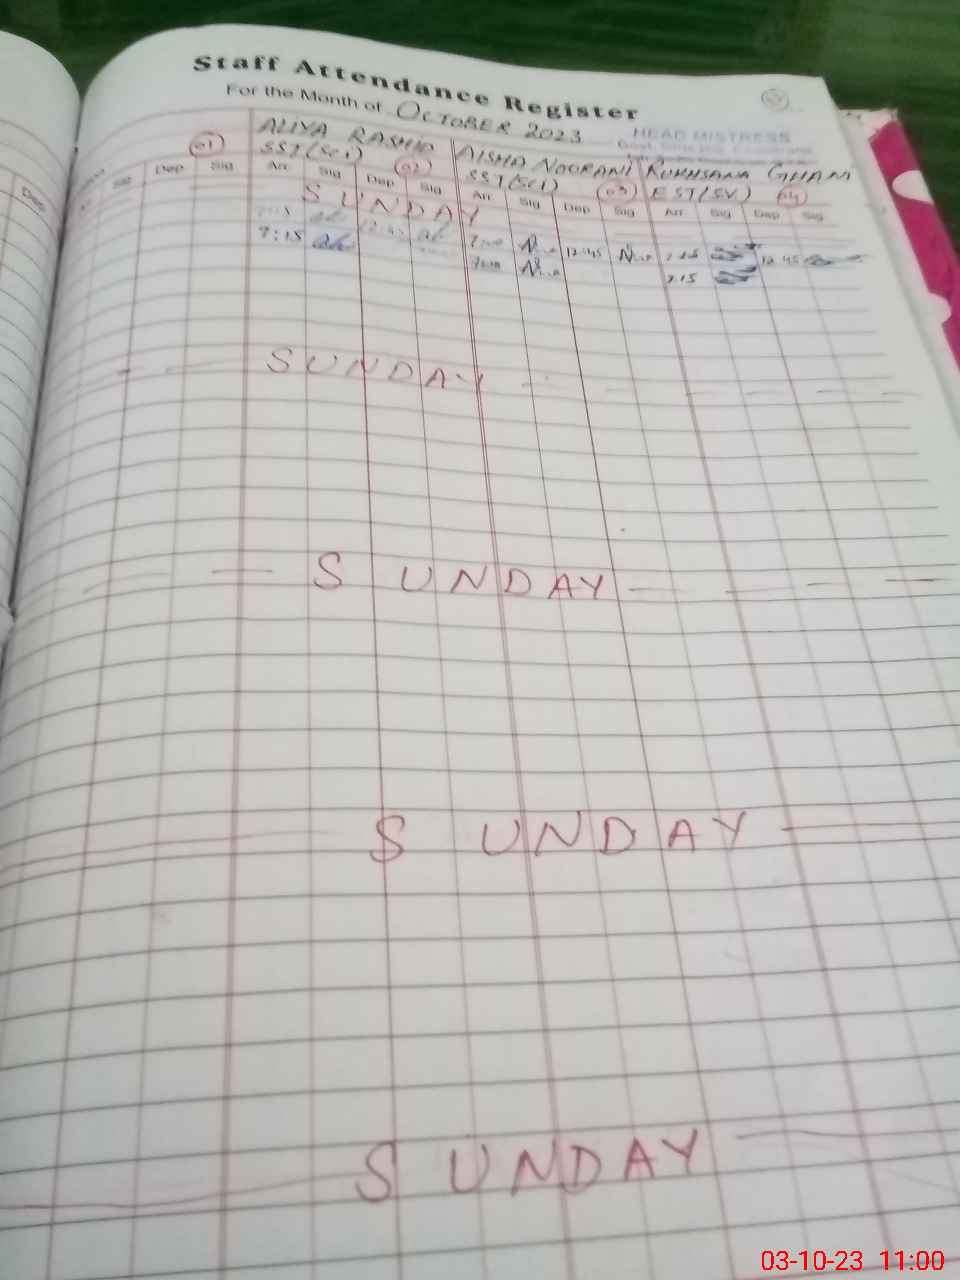 Staff Attendance Register
For the Month of OCTOBER 2023
HEAD MISTRESS
01 ALIYA RASHID AISHA NOORANI RUKHSANA GHANI
SST(SCI) 02 SST(SCI) 03 EST(SV) 04
Sig Dep Sig Arr Sig Dep Sig Arr Sig Dep Sig Arr Sig Dep Sig
Dep
SUNDAY
12:45 12:45 12 45
7:15 7:15
SUNDAY
SUNDAY
SUNDAY
SUNDAY
03-10-23 11:00